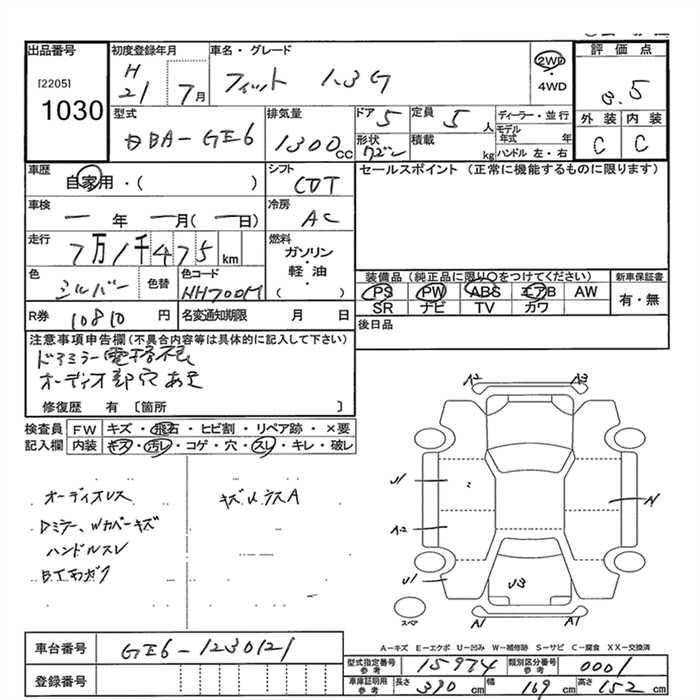 出品番号
[2205]
1030
初度登録年月
H
21 7月
車名・グレード
フィット 1.3G
2WD
・
4WD
評価点
3.5
外装 内装
C C
型式
DBA-GE6
排気量
1300cc
ドア 5
定員 5人
形状
積載 kg
ディーラー・並行
モデル年式 年
ハンドル 左・右
車歴
自家用・( )
シフト
CVT
セールスポイント (正常に機能するものに限ります)
車検
一年 一月(一日)
冷房
AC
走行
7万1千475km
燃料
ガソリン
・
軽・油
( )
色
シルバー
色替
色コード
NH700M
装備品 (純正品に限り○をつけてください)
PS PW ABS エアB AW
SR ナビ TV カワ
新車保証書
有・無
R券 10810円
名変通知期限 月 日
後日品
注意事項申告欄(不具合内容等は具体的に記入して下さい)
ドアミラー電格不良
オーディオ部穴あき
修復歴 有 〔箇所 〕
検査員 FW キズ・飛石・ヒビ割・リペア跡・×要
記入欄 内装 キズ・汚レ・コゲ・穴・スレ・キレ・破レ
オーディオレス
キズ
Dミラー、Wカバーキズ
ハンドルスレ
A2 A3
U1
A2
U1
U3
A1 A1
スペア
A-キズ E-エクボ U-凹み W-補修跡 S-サビ C-腐食 XX-交換済
車台番号 GE6-1230121
登録番号
型式指定番号 参考 15974
類別区分番号 参考 0001
車庫証明用 参考 長さ 390cm 幅 169cm 高さ 152cm